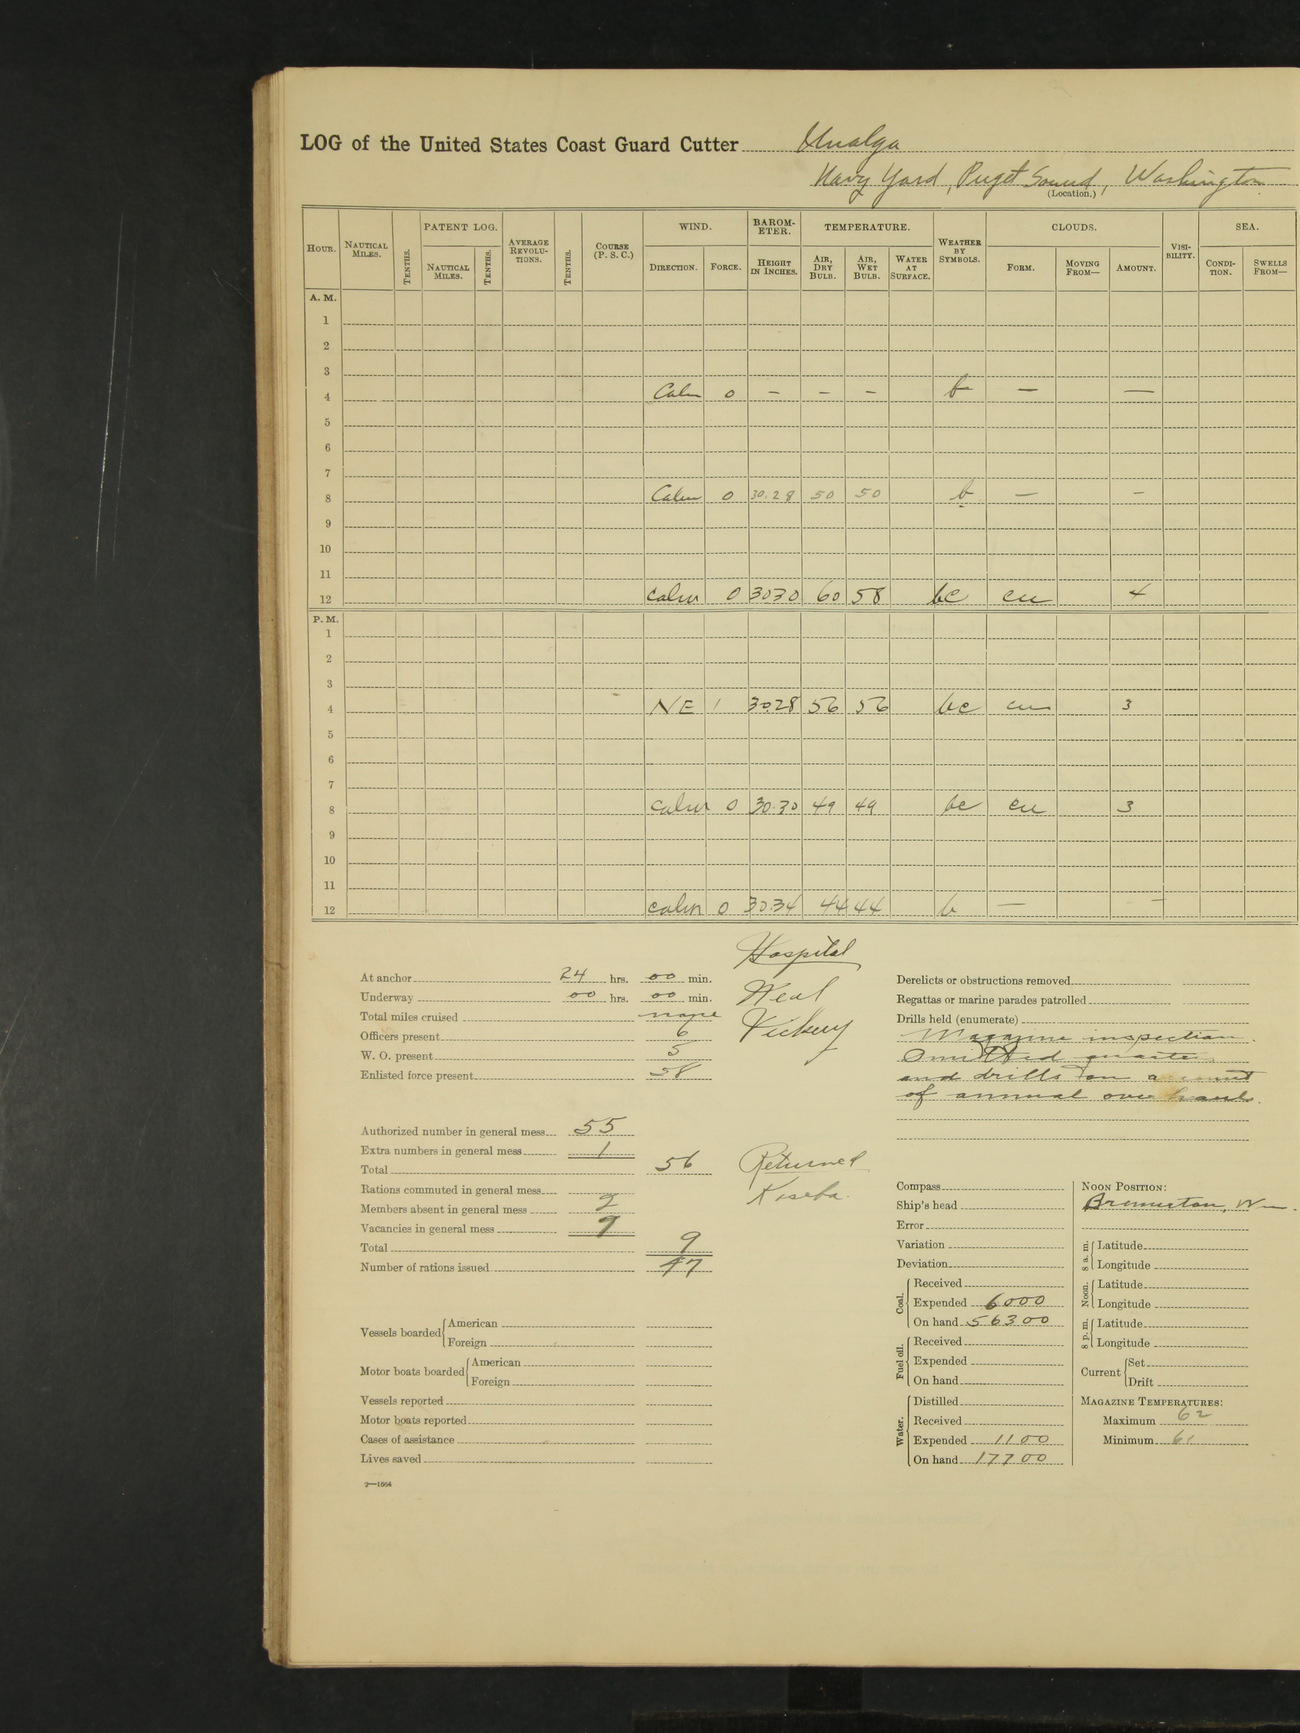 LOG of the United States Coast Guard Cutter Unalga
Navy Yard, Puget Sound, Washington
(Location.)
HOUR. NAUTICAL MILES. TENTHS. PATENT LOG. NAUTICAL MILES. TENTHS. AVERAGE REVOLUTIONS. TENTHS. COURSE (P. S. C.) WIND. DIRECTION. FORCE. BAROMETER. HEIGHT IN INCHES. TEMPERATURE. AIR, DRY BULB. AIR, WET BULB. WATER AT SURFACE. WEATHER BY SYMBOLS. CLOUDS. FORM. MOVING FROM— AMOUNT. VISIBILITY. SEA. CONDITION. SWELLS FROM—
A. M.
1
2
3
4 Calm 0 — — — b — —
5
6
7
8 Calm 0 30.28 50 50 b — —
9
10
11
12 calm 0 3030 60 58 bc cu 4
P. M.
1
2
3
4 NE 1 3028 56 56 bc cu 3
5
6
7
8 calm 0 30.30 49 49 bc cu 3
9
10
11
12 calm 0 30.34 44 44 b — —
At anchor 24 hrs. 00 min.
Underway 00 hrs. 00 min.
Total miles cruised none
Officers present 6
W. O. present 5
Enlisted force present 58
Authorized number in general mess 55
Extra numbers in general mess 1
Total 56
Rations commuted in general mess
Members absent in general mess 2
Vacancies in general mess 7
Total 9
Number of rations issued 47
Vessels boarded American
Foreign
Motor boats boarded American
Foreign
Vessels reported
Motor boats reported
Cases of assistance
Lives saved
2—1564
Hospital
Neal
Vickery
Returned
Derelicts or obstructions removed
Regattas or marine parades patrolled
Drills held (enumerate)
Magazine inspection.
Omitted quarters
and drills on account
of annual overhaul.
Compass
Ship's head
Error
Variation
Deviation
Coal. Received
Expended 6000
On hand 56300
Fuel oil. Received
Expended
On hand
Water. Distilled
Received
Expended 1100
On hand 17700
NOON POSITION:
Bremerton, Wn.
8 a. m. Latitude
Longitude
Noon. Latitude
Longitude
8 p. m. Latitude
Longitude
Current Set
Drift
MAGAZINE TEMPERATURES:
Maximum 62
Minimum 61